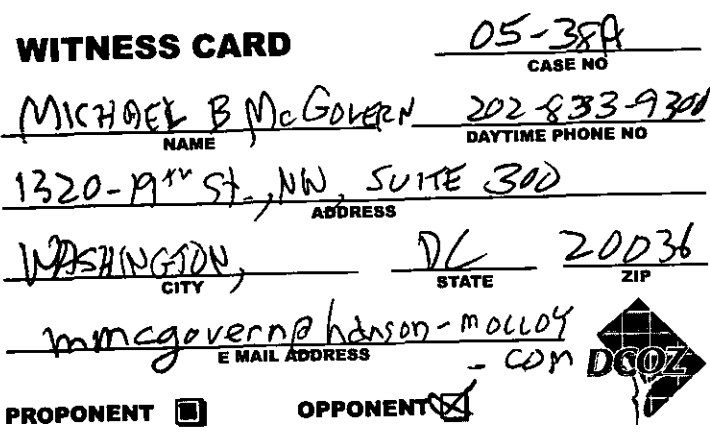 WITNESS CARD 05-38A
CASE NO
MICHAEL B McGOVERN 202-833-9300
NAME DAYTIME PHONE NO
1320-19TH St., NW, SUITE 300
ADDRESS
WASHINGTON, DC 20036
CITY STATE ZIP
mmcgovern@hanson-molloy
E MAIL ADDRESS .com DCOZ
PROPONENT OPPONENT